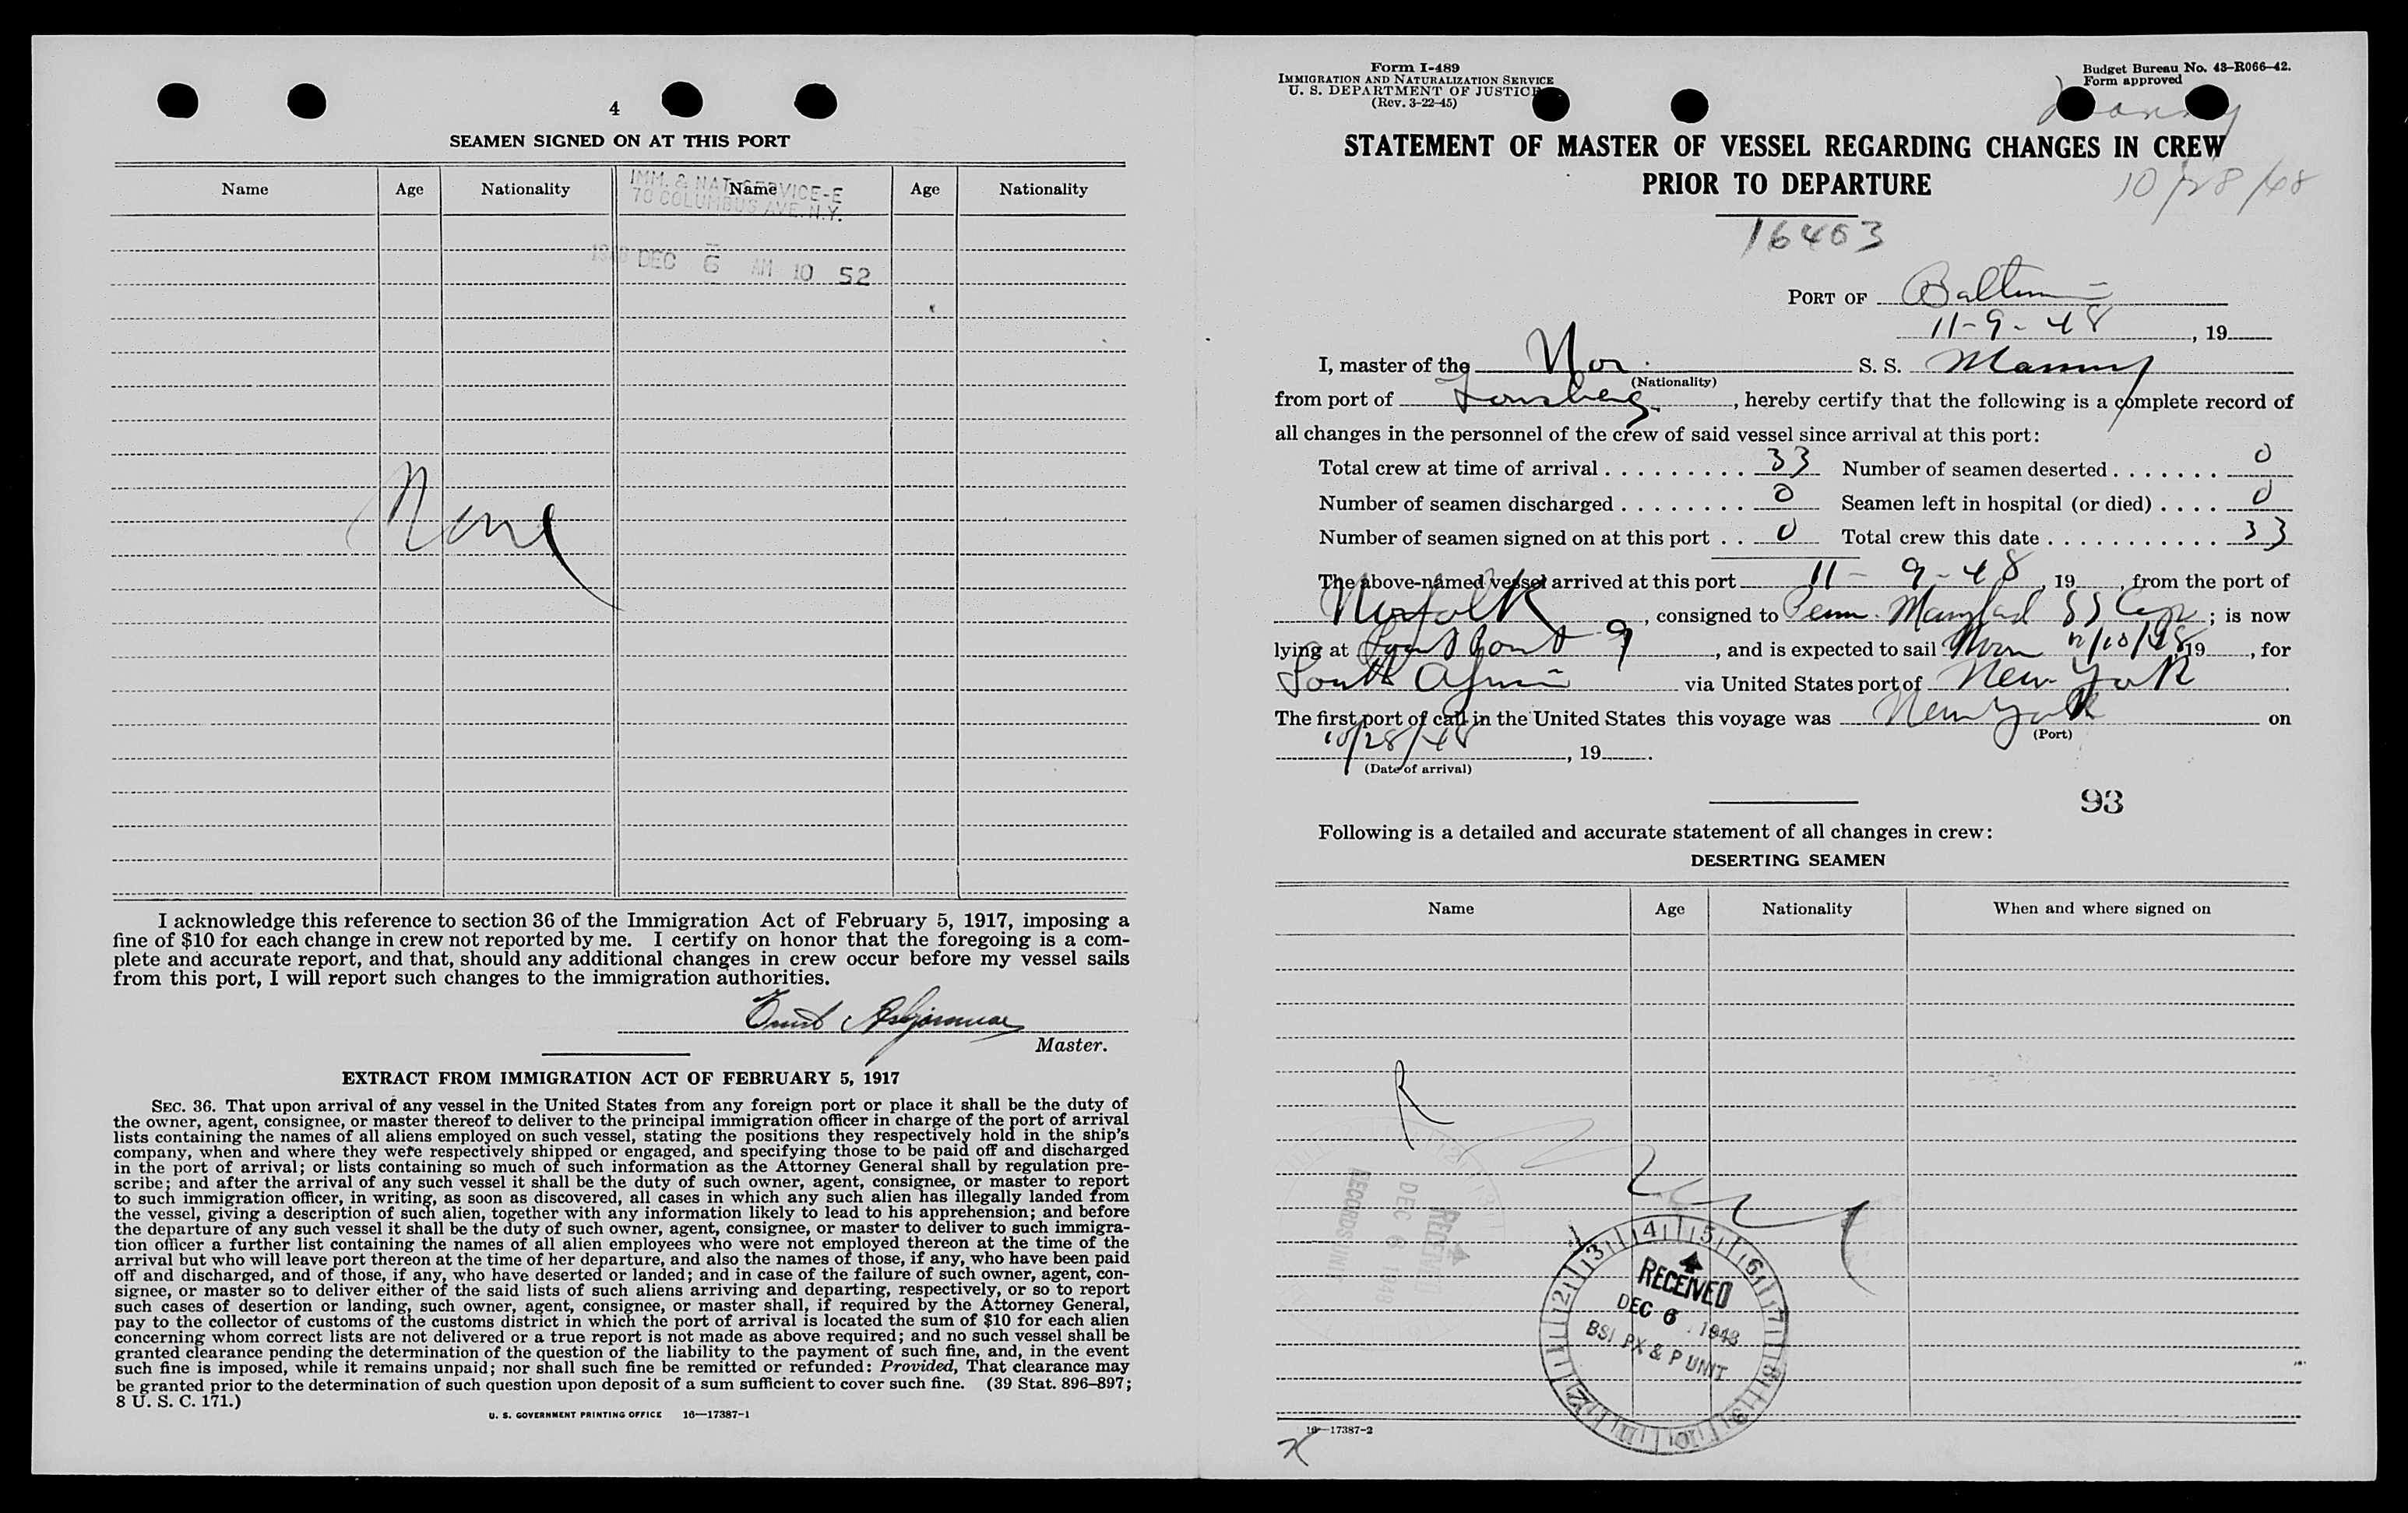 4
SEAMEN SIGNED ON AT THIS PORT
Name Age Nationality Name Age Nationality
IMM. & NAT. SERVICE-E
70 COLUMBUS AVE. N.Y.
DEC 6 AM 10 52
None
I acknowledge this reference to section 36 of the Immigration Act of February 5, 1917, imposing a
fine of $10 for each change in crew not reported by me. I certify on honor that the foregoing is a com-
plete and accurate report, and that, should any additional changes in crew occur before my vessel sails
from this port, I will report such changes to the immigration authorities.
Master.
EXTRACT FROM IMMIGRATION ACT OF FEBRUARY 5, 1917
SEC. 36. That upon arrival of any vessel in the United States from any foreign port or place it shall be the duty of
the owner, agent, consignee, or master thereof to deliver to the principal immigration officer in charge of the port of arrival
lists containing the names of all aliens employed on such vessel, stating the positions they respectively hold in the ship's
company, when and where they were respectively shipped or engaged, and specifying those to be paid off and discharged
in the port of arrival; or lists containing so much of such information as the Attorney General shall by regulation pre-
scribe; and after the arrival of any such vessel it shall be the duty of such owner, agent, consignee, or master to report
to such immigration officer, in writing, as soon as discovered, all cases in which any such alien has illegally landed from
the vessel, giving a description of such alien, together with any information likely to lead to his apprehension; and before
the departure of any such vessel it shall be the duty of such owner, agent, consignee, or master to deliver to such immigra-
tion officer a further list containing the names of all alien employees who were not employed thereon at the time of the
arrival but who will leave port thereon at the time of her departure, and also the names of those, if any, who have been paid
off and discharged, and of those, if any, who have deserted or landed; and in case of the failure of such owner, agent, con-
signee, or master so to deliver either of the said lists of such aliens arriving and departing, respectively, or so to report
such cases of desertion or landing, such owner, agent, consignee, or master shall, if required by the Attorney General,
pay to the collector of customs of the customs district in which the port of arrival is located the sum of $10 for each alien
concerning whom correct lists are not delivered or a true report is not made as above required; and no such vessel shall be
granted clearance pending the determination of the question of the liability to the payment of such fine, and, in the event
such fine is imposed, while it remains unpaid; nor shall such fine be remitted or refunded: Provided, That clearance may
be granted prior to the determination of such question upon deposit of a sum sufficient to cover such fine. (39 Stat. 896–897;
8 U. S. C. 171.)
U. S. GOVERNMENT PRINTING OFFICE 16—17387-1
Form I-489
IMMIGRATION AND NATURALIZATION SERVICE
U. S. DEPARTMENT OF JUSTICE
(Rev. 3-22-45)
Budget Bureau No. 43–R066–42.
Form approved
STATEMENT OF MASTER OF VESSEL REGARDING CHANGES IN CREW
PRIOR TO DEPARTURE
10/28/48
16463
PORT OF
11-9-48, 19
I, master of the Nor. S. S.
(Nationality)
from port of , hereby certify that the following is a complete record of
all changes in the personnel of the crew of said vessel since arrival at this port:
Total crew at time of arrival 33 Number of seamen deserted 0
Number of seamen discharged 0 Seamen left in hospital (or died) 0
Number of seamen signed on at this port 0 Total crew this date 33
The above-named vessel arrived at this port 11-9-48, 19, from the port of
Norfolk, consigned to Penn. Maryland SS Corp; is now
lying at , and is expected to sail , 19, for
South via United States port of New York
The first port of call in the United States this voyage was New York on
(Port)
10/28/48, 19.
(Date of arrival)
93
Following is a detailed and accurate statement of all changes in crew:
DESERTING SEAMEN
Name Age Nationality When and where signed on
RECEIVED
DEC 6 1948
RECORDS UNIT
RECEIVED
DEC 6 1948
BSI PX & P UNIT
16—17387-2